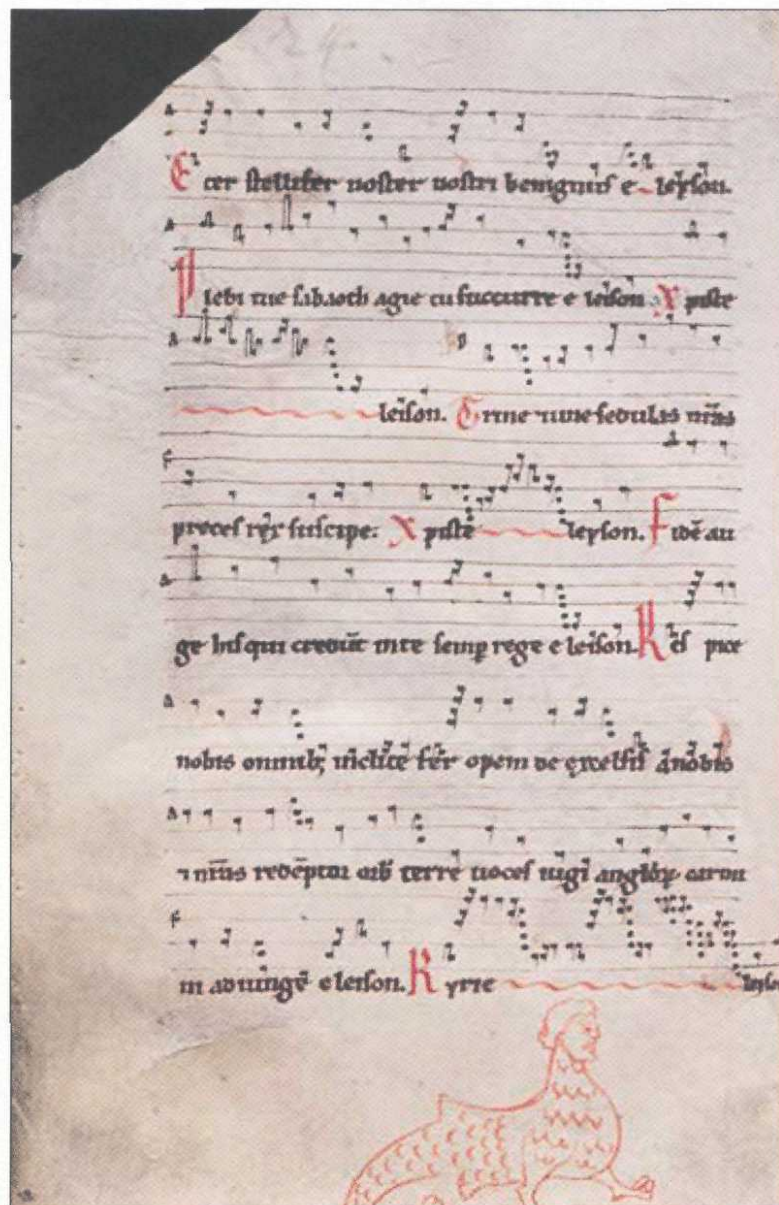 E cer stellifer noster nostri benignus e leyson.
P lebi tue sabaoth agie tu succurre e leison X piste
leison. T rine 7 une sedulis nras
preces rex suscipe. X piste leyson. F ide au
ge his qui credut in te semp rege e leison. R es pice
nobis omnib; inclite fer opem de excelsis
redeptor terre uoces angloꝝ carmi
ni adiunge e leison. K yrie leyso